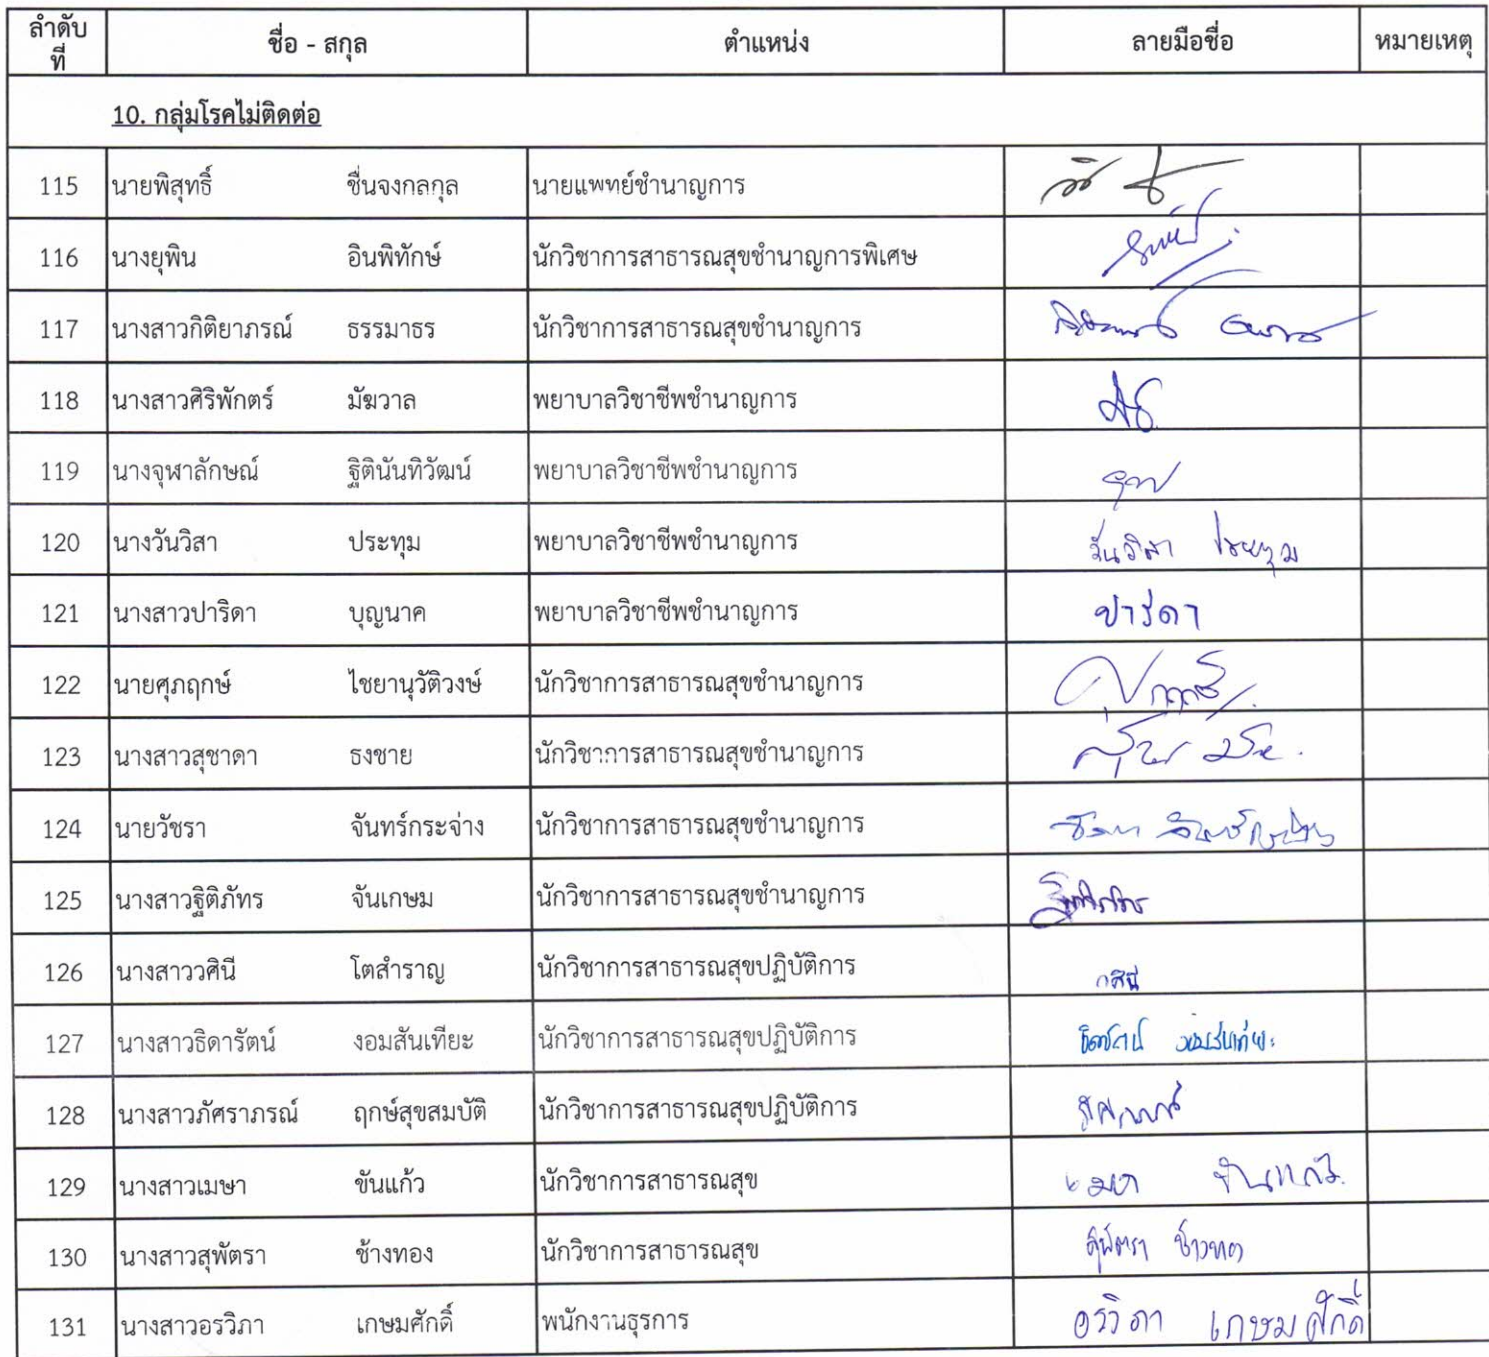 ลำดับที่ ชื่อ - สกุล ตำแหน่ง ลายมือชื่อ หมายเหตุ
10. กลุ่มโรคไม่ติดต่อ
115 นายพิสุทธิ์ ชื่นจงกลกุล นายแพทย์ชำนาญการ
116 นางยุพิน อินพิทักษ์ นักวิชาการสาธารณสุขชำนาญการพิเศษ
117 นางสาวกิติยาภรณ์ ธรรมาธร นักวิชาการสาธารณสุขชำนาญการ
118 นางสาวศิริพักตร์ มัฆวาล พยาบาลวิชาชีพชำนาญการ
119 นางจุฬาลักษณ์ ฐิตินันทิวัฒน์ พยาบาลวิชาชีพชำนาญการ
120 นางวันวิสา ประทุม พยาบาลวิชาชีพชำนาญการ วันวิสา ประทุม
121 นางสาวปาริดา บุญนาค พยาบาลวิชาชีพชำนาญการ ปาริดา
122 นายศุภฤกษ์ ไชยานุวัติวงษ์ นักวิชาการสาธารณสุขชำนาญการ
123 นางสาวสุชาดา ธงชาย นักวิชาการสาธารณสุขชำนาญการ
124 นายวัชรา จันทร์กระจ่าง นักวิชาการสาธารณสุขชำนาญการ
125 นางสาวฐิติภัทร จันเกษม นักวิชาการสาธารณสุขชำนาญการ
126 นางสาววศินี โตสำราญ นักวิชาการสาธารณสุขปฏิบัติการ วศินี
127 นางสาวธิดารัตน์ งอมสันเทียะ นักวิชาการสาธารณสุขปฏิบัติการ ธิดารัตน์ งอมสันเทียะ
128 นางสาวภัศราภรณ์ ฤกษ์สุขสมบัติ นักวิชาการสาธารณสุขปฏิบัติการ
129 นางสาวเมษา ขันแก้ว นักวิชาการสาธารณสุข เมษา ขันแก้ว
130 นางสาวสุพัตรา ช้างทอง นักวิชาการสาธารณสุข สุพัตรา ช้างทอง
131 นางสาวอรวิภา เกษมศักดิ์ พนักงานธุรการ อรวิภา เกษมศักดิ์